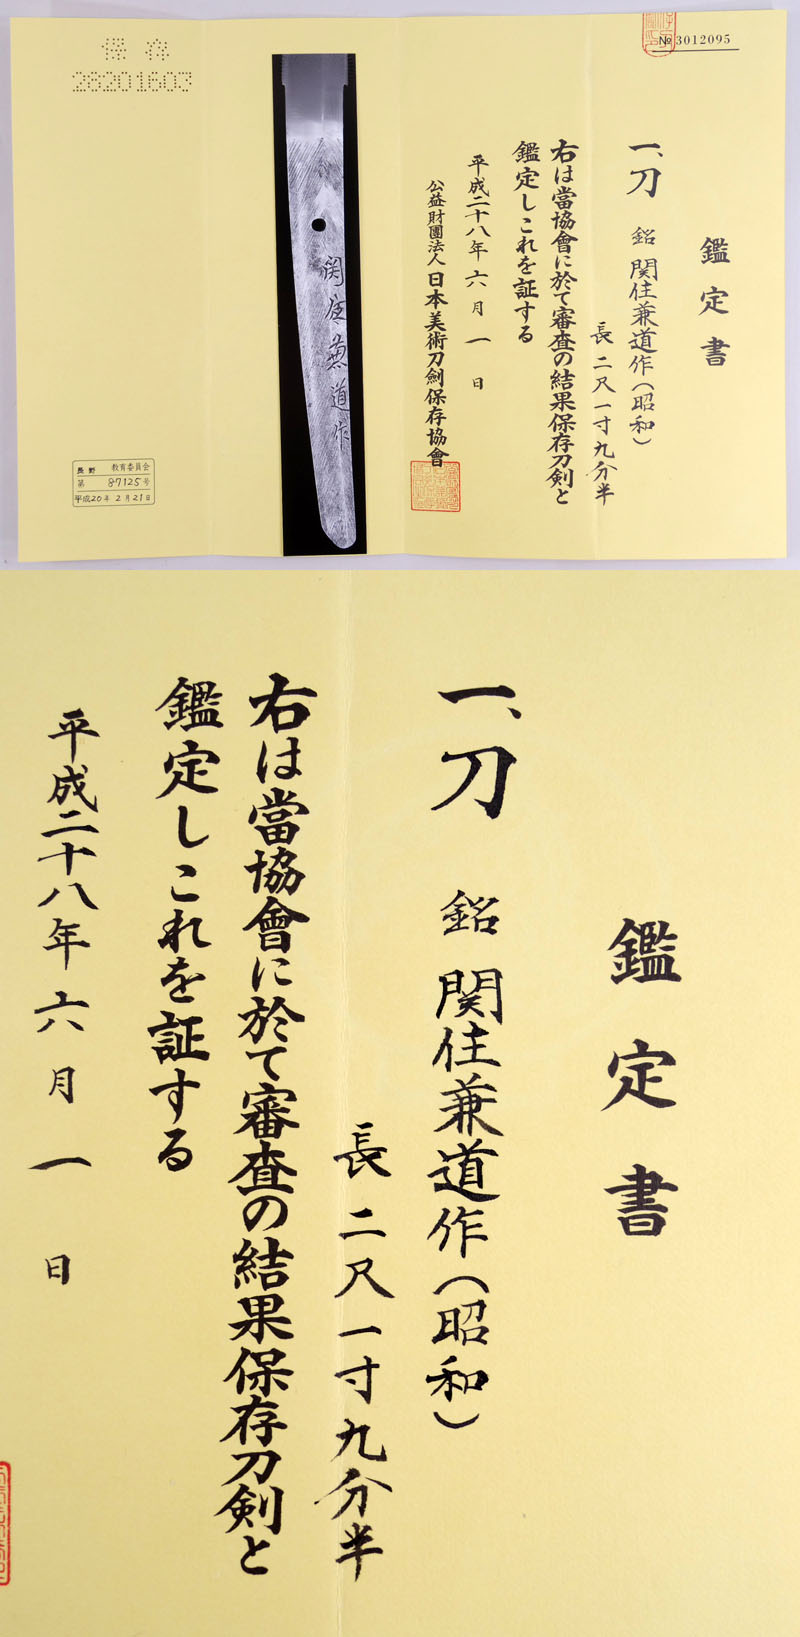 № 3012095
鑑定書
一、刀 銘 関住兼道作(昭和)
長 二尺一寸九分半
右は當協會に於て審査の結果保存刀剣と
鑑定しこれを証する
平成二十八年六月一日
公益財團法人日本美術刀劍保存協會
関住兼道作
保存
28201603
長野 教育委員会
第 87125号
平成20年2月21日
鑑定書
一、刀 銘 関住兼道作(昭和)
長 二尺一寸九分半
右は當協會に於て審査の結果保存刀剣と
鑑定しこれを証する
平成二十八年六月一日